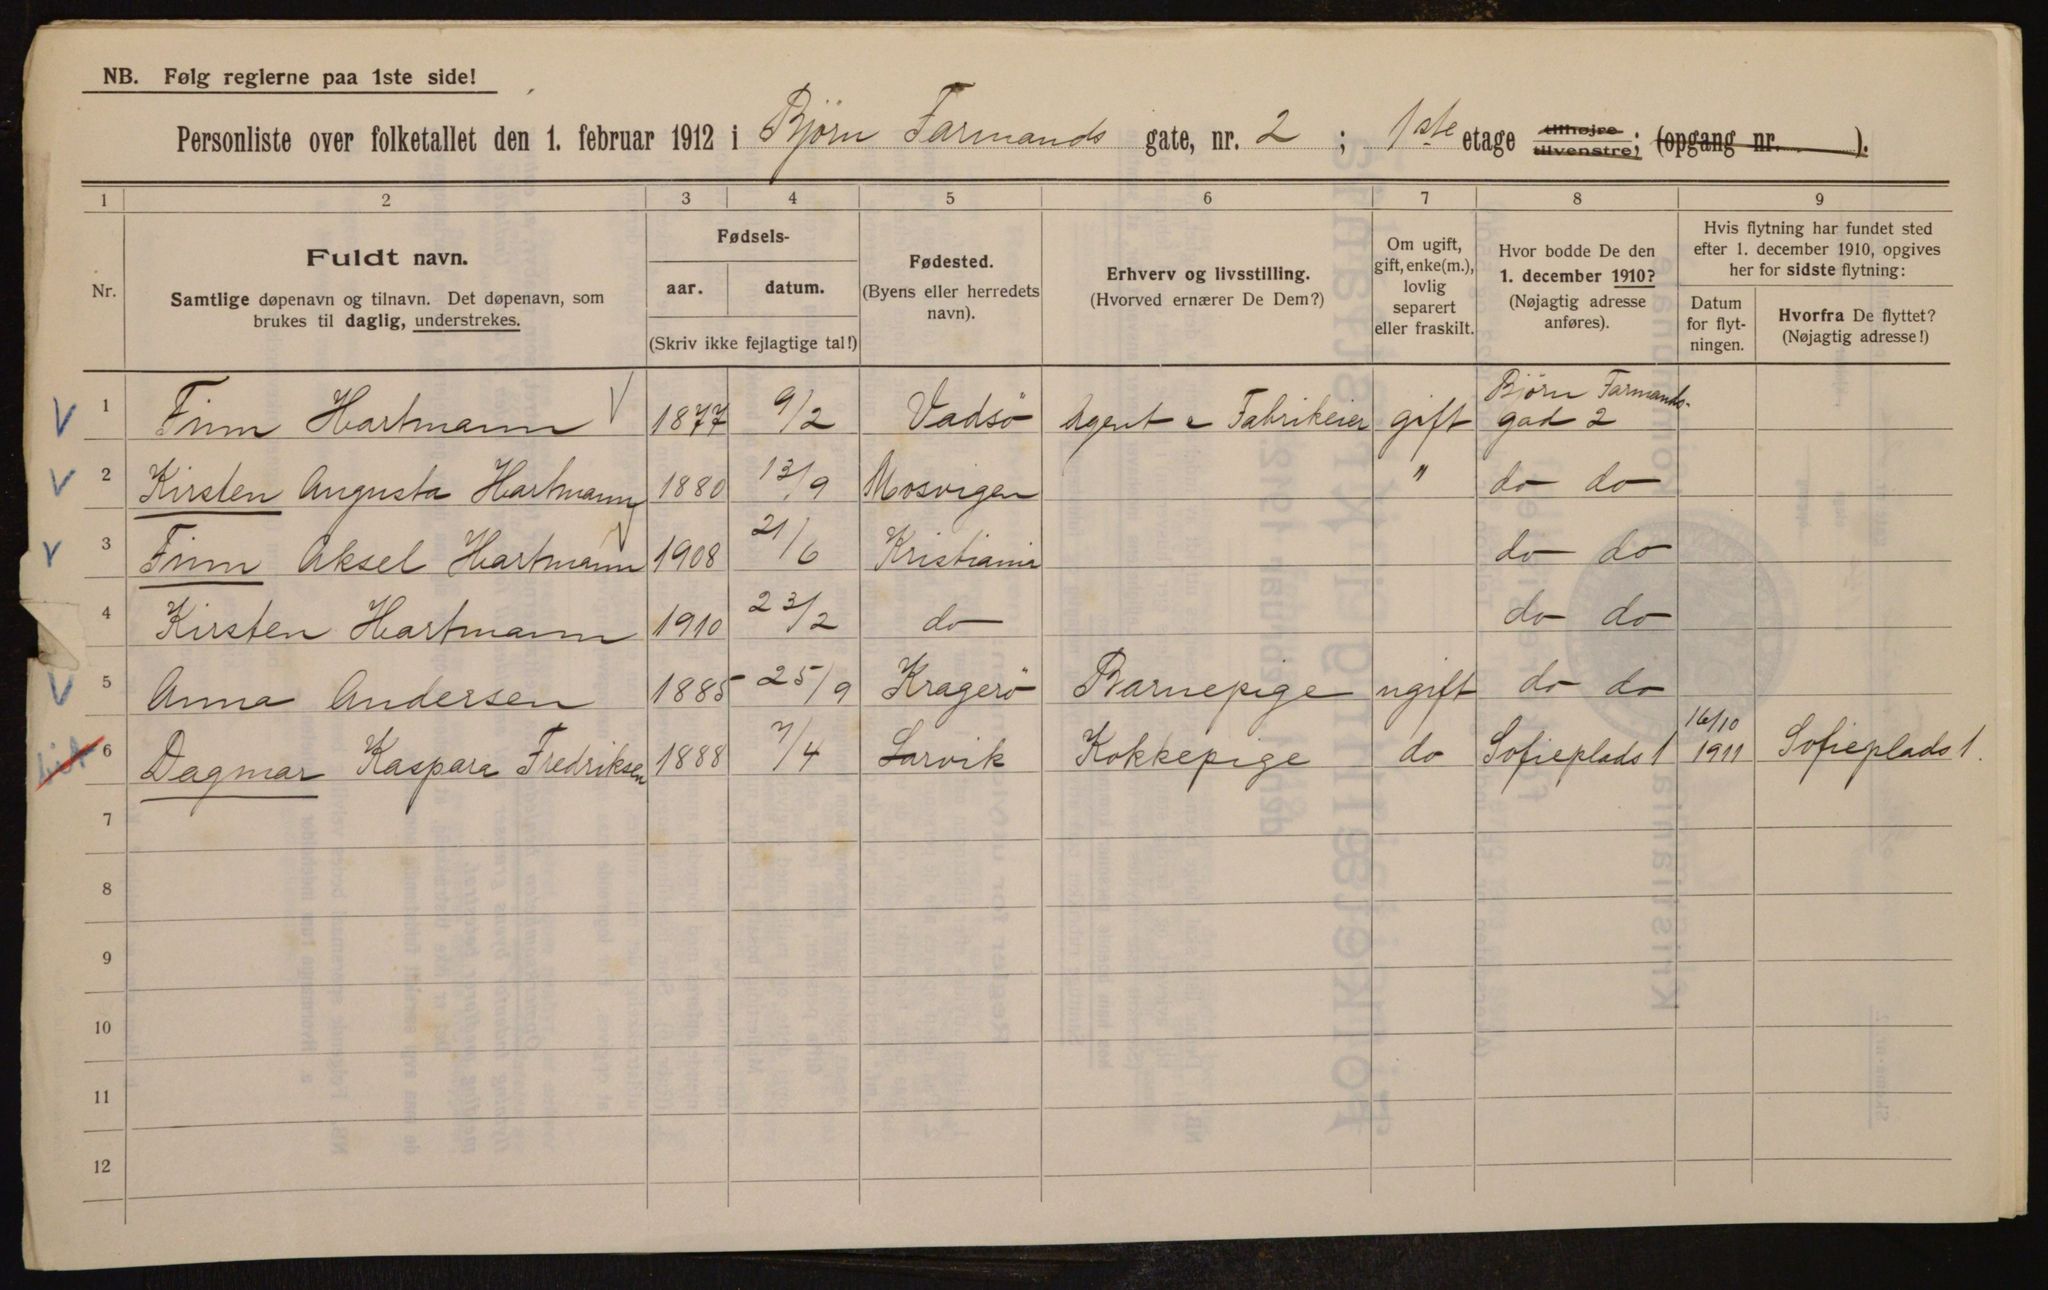 NB. Følg reglerne paa 1ste side!
Personliste over folketallet den 1. februar 1912 i Bjørn Farmands gate, nr. 2 ; 1ste etage tilhøjre tilvenstre; (opgang nr. ).
1 2 3 4 5 6 7 8 9
Nr.
Fuldt navn.
Samtlige døpenavn og tilnavn. Det døpenavn, som
brukes til daglig, understrekes.
Fødsels-
aar. datum.
(Skriv ikke fejlagtige tal!)
Fødested.
(Byens eller herredets
navn).
Erhverv og livsstilling.
(Hvorved ernærer De Dem?)
Om ugift,
gift, enke(m.),
lovlig
separert
eller fraskilt.
Hvor bodde De den
1. december 1910?
(Nøjagtig adresse
anføres).
Hvis flytning har fundet sted
efter 1. december 1910, opgives
her for sidste flytning:
Datum
for flyt-
ningen.
Hvorfra De flyttet?
(Nøjagtig adresse!)
1 Finn Hartmann 1877 9/2 Vadsö Agent & Fabrikeier gift Bjørn Farmands-
gad 2
2 Kirsten Augusta Hartmann 1880 13/9 Mosvigen " do do
3 Finn Aksel Hartmann 1908 21/6 Kristiania do do
4 Kirsten Hartmann 1910 23/2 do do do
5 Anna Andersen 1885 25/9 Kragerö Barnepige ugift do do
6 Dagmar Kaspara Fredriksen 1888 7/4 Larvik Kokkepige do Sofieplads 1 16/10 1911 Sofieplads 1.
7
8
9
10
11
12